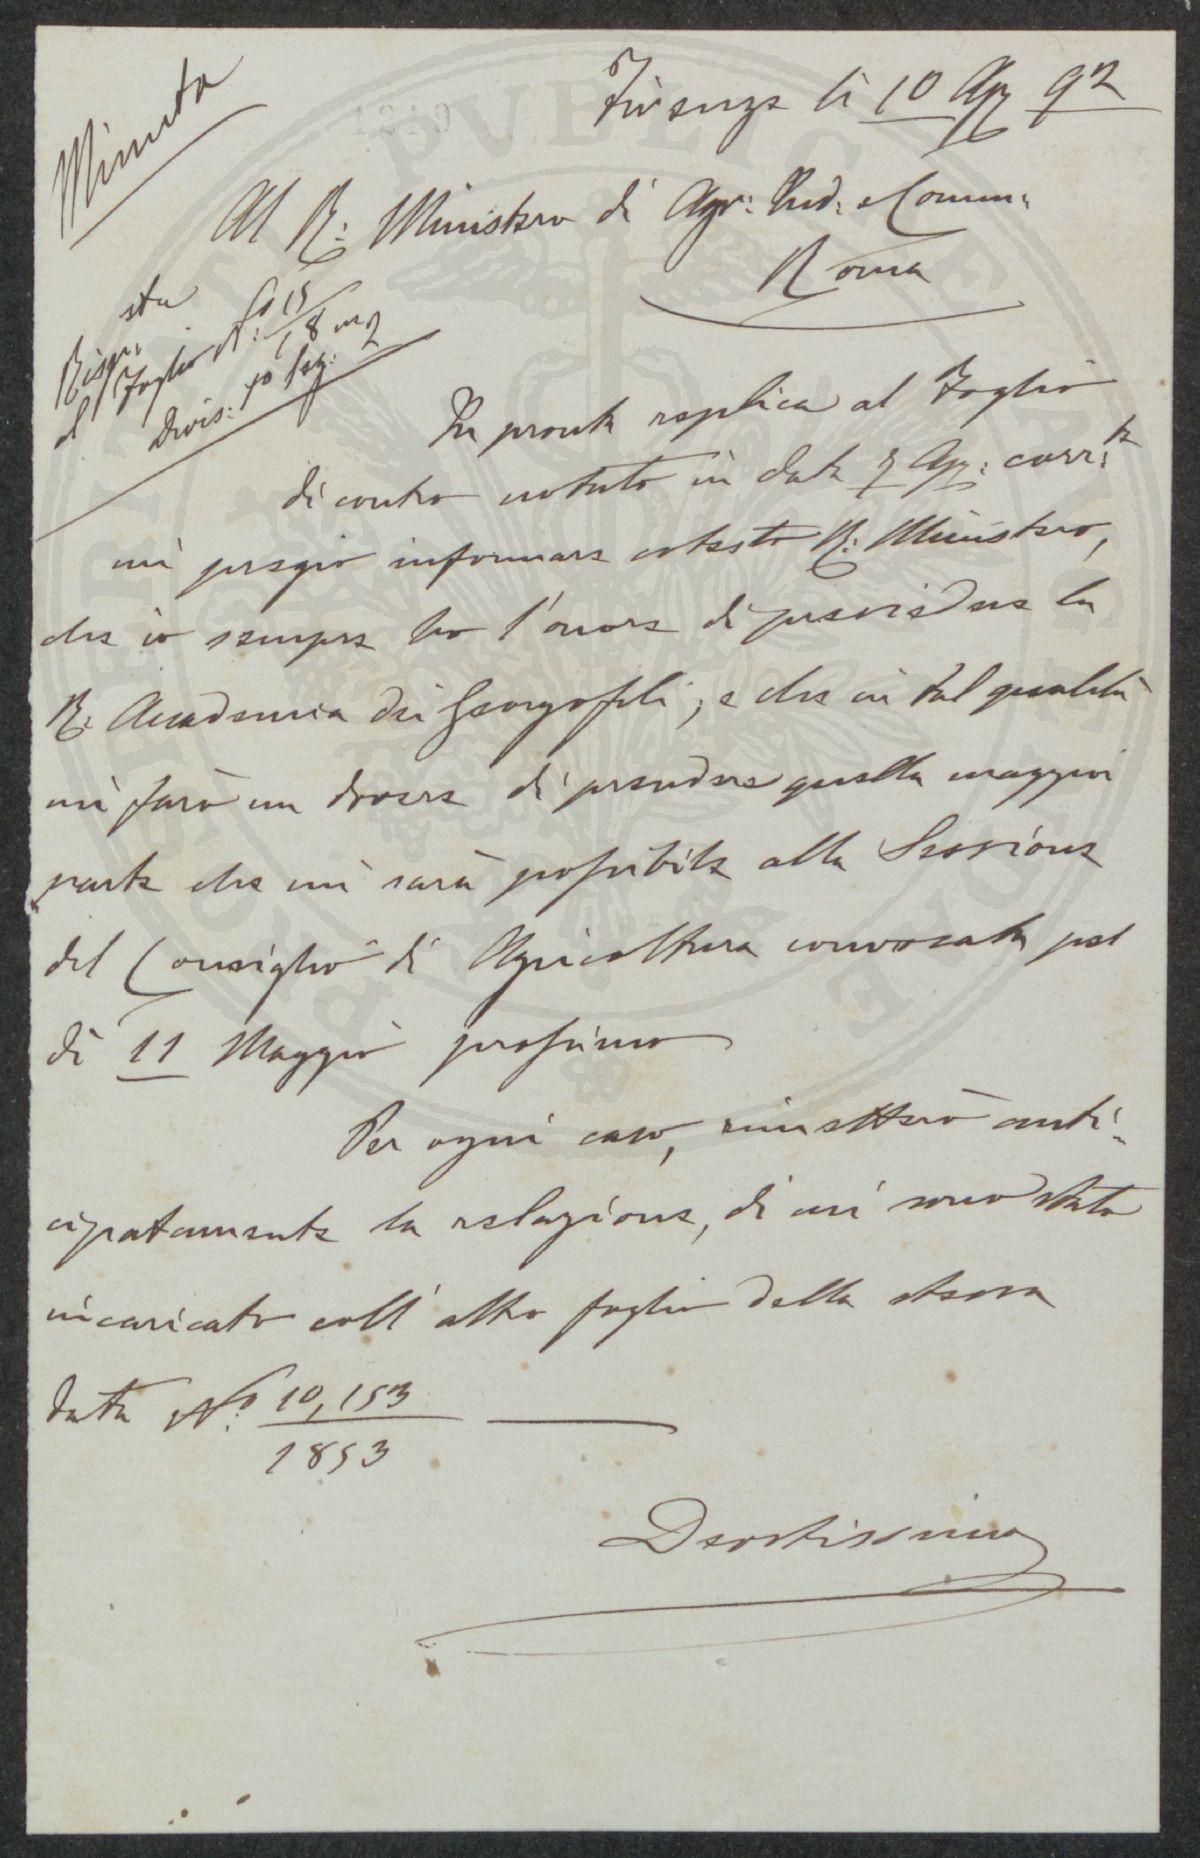 Minuta
Firenze lì 10 Ap: 92
Al R: Ministero di Agr: Ind: e Comm:
Roma
Rispo:sta
al Foglio N:
Divis: 1a Sez: 2
In pronta replica al Foglio
di contro notato in data 7 Ap: corr:te
mi pregio informare cotesto R: Ministero,
che io sempre ho l'onore di presiedere la
R: Accademia dei Georgofili; e che in tal qualità
mi farò un dovere di prendere quella maggior
parte che mi sarà possibile alla Sessione
del Consiglio di Agricoltura convocata pel
dì 11 Maggio prossimo
Per ogni caso, rimetterò anti=
cipatamente la relazione, di cui sono stato
incaricato coll'altro foglio della stessa
data N:o 10,153
1853
Devotissimo